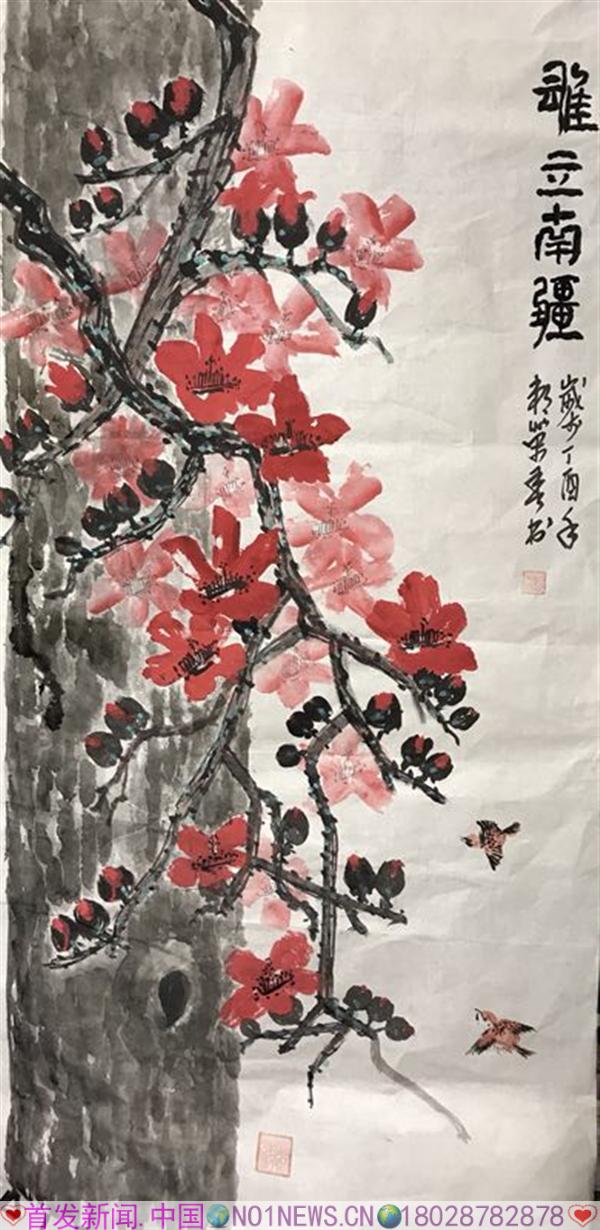 雄立南疆
歲次丁酉年
首发新闻.中国🌍NO1NEWS.CN🌍18028782878